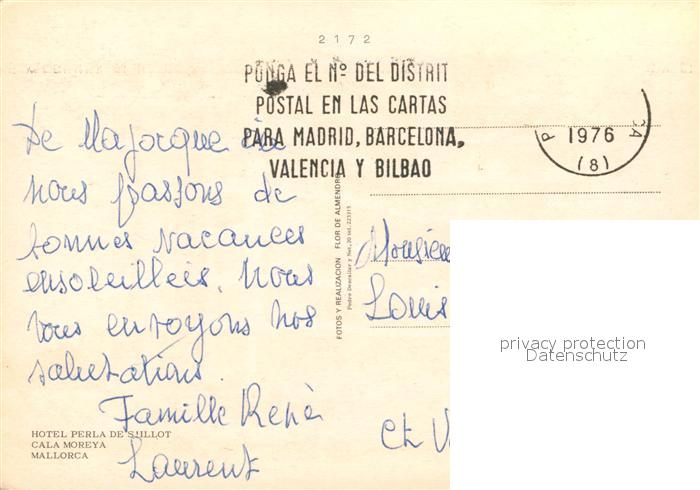 2172
PONGA EL Nº DEL DISTRIT
POSTAL EN LAS CARTAS
PARA MADRID, BARCELONA,
VALENCIA Y BILBAO
P CA
1976
(8)
De Majorque où
nous passons de
bonnes vacances
ensoleillées. Nous
vous envoyons nos
salutations.
Famille René
Laurent
HOTEL PERLA DE S'ILLOT
CALA MOREYA
MALLORCA
FOTOS Y REALIZACION FLOR DE ALMENDRO
Monsieu
Louis
privacy protection
Datenschutz
CH V